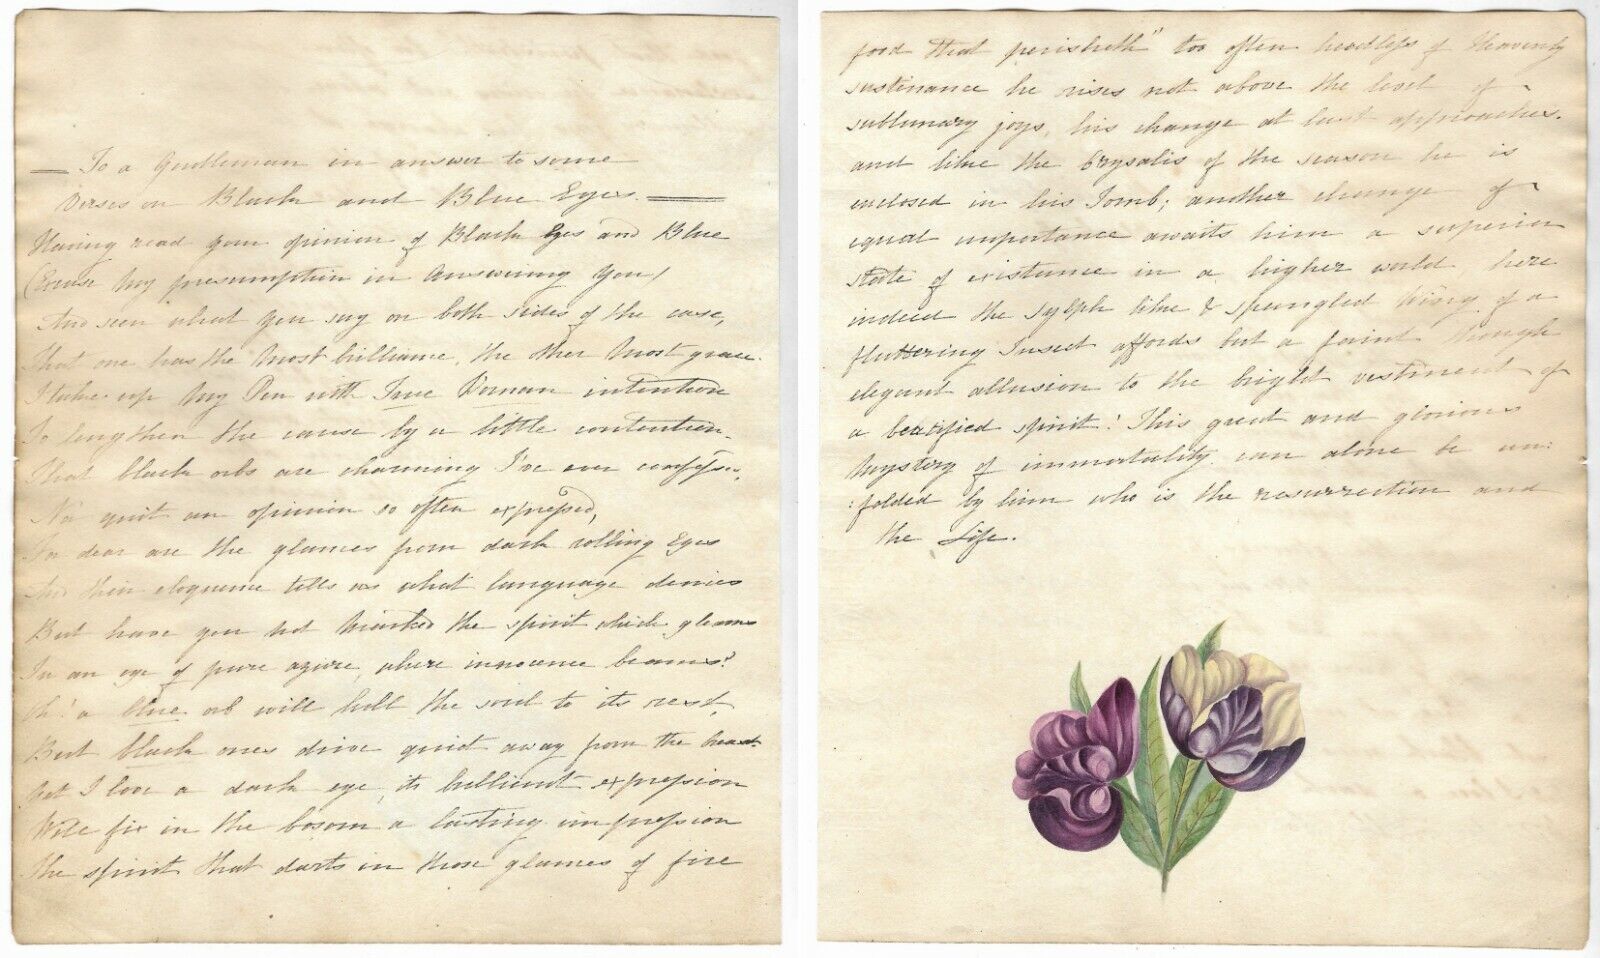 To a Gentleman in answer to some
Verses on Black and Blue Eyes.
Having read your opinion of Black Eyes and Blue
(Excuse My presumption in answering You)
And seen what you say on both sides of the case,
That one has the Most brilliance, the other Most grace.
I take up My Pen with True Woman intention
To lengthen the cause by a little contention.
That black orbs are charming I've ever confess'd,
Nor quit an opinion so often expressed,
For dear are the glances from dark rolling Eyes
And their eloquence tells us what language denies
But have you not Marked the spirit which gleams
In an eye of pure azure, where innocence beams?
Oh! a blue orb will lull the soul to its rest,
But black ones drive quiet away from the breast.
Yet I love a dark eye, its brilliant expression
Will fix in the bosom a lasting impression
The spirit that darts in those glances of fire
food that perisheth" too often heedless of Heavenly
sustenance he rises not above the level of
sublunary joys, his change at last approaches.
and like the Crysalis of the season he is
enclosed in his Tomb; another change of
equal importance awaits him a superior
state of existance in a higher world here
indeed the Sylph like & spangled Wing of a
fluttering Insect affords but a faint though
elegant allusion to the bright vestment of
a beatified spirit! This great and glorious
Mystery of immortality can alone be un:
:folded by him who is the resurrection and
the Life.